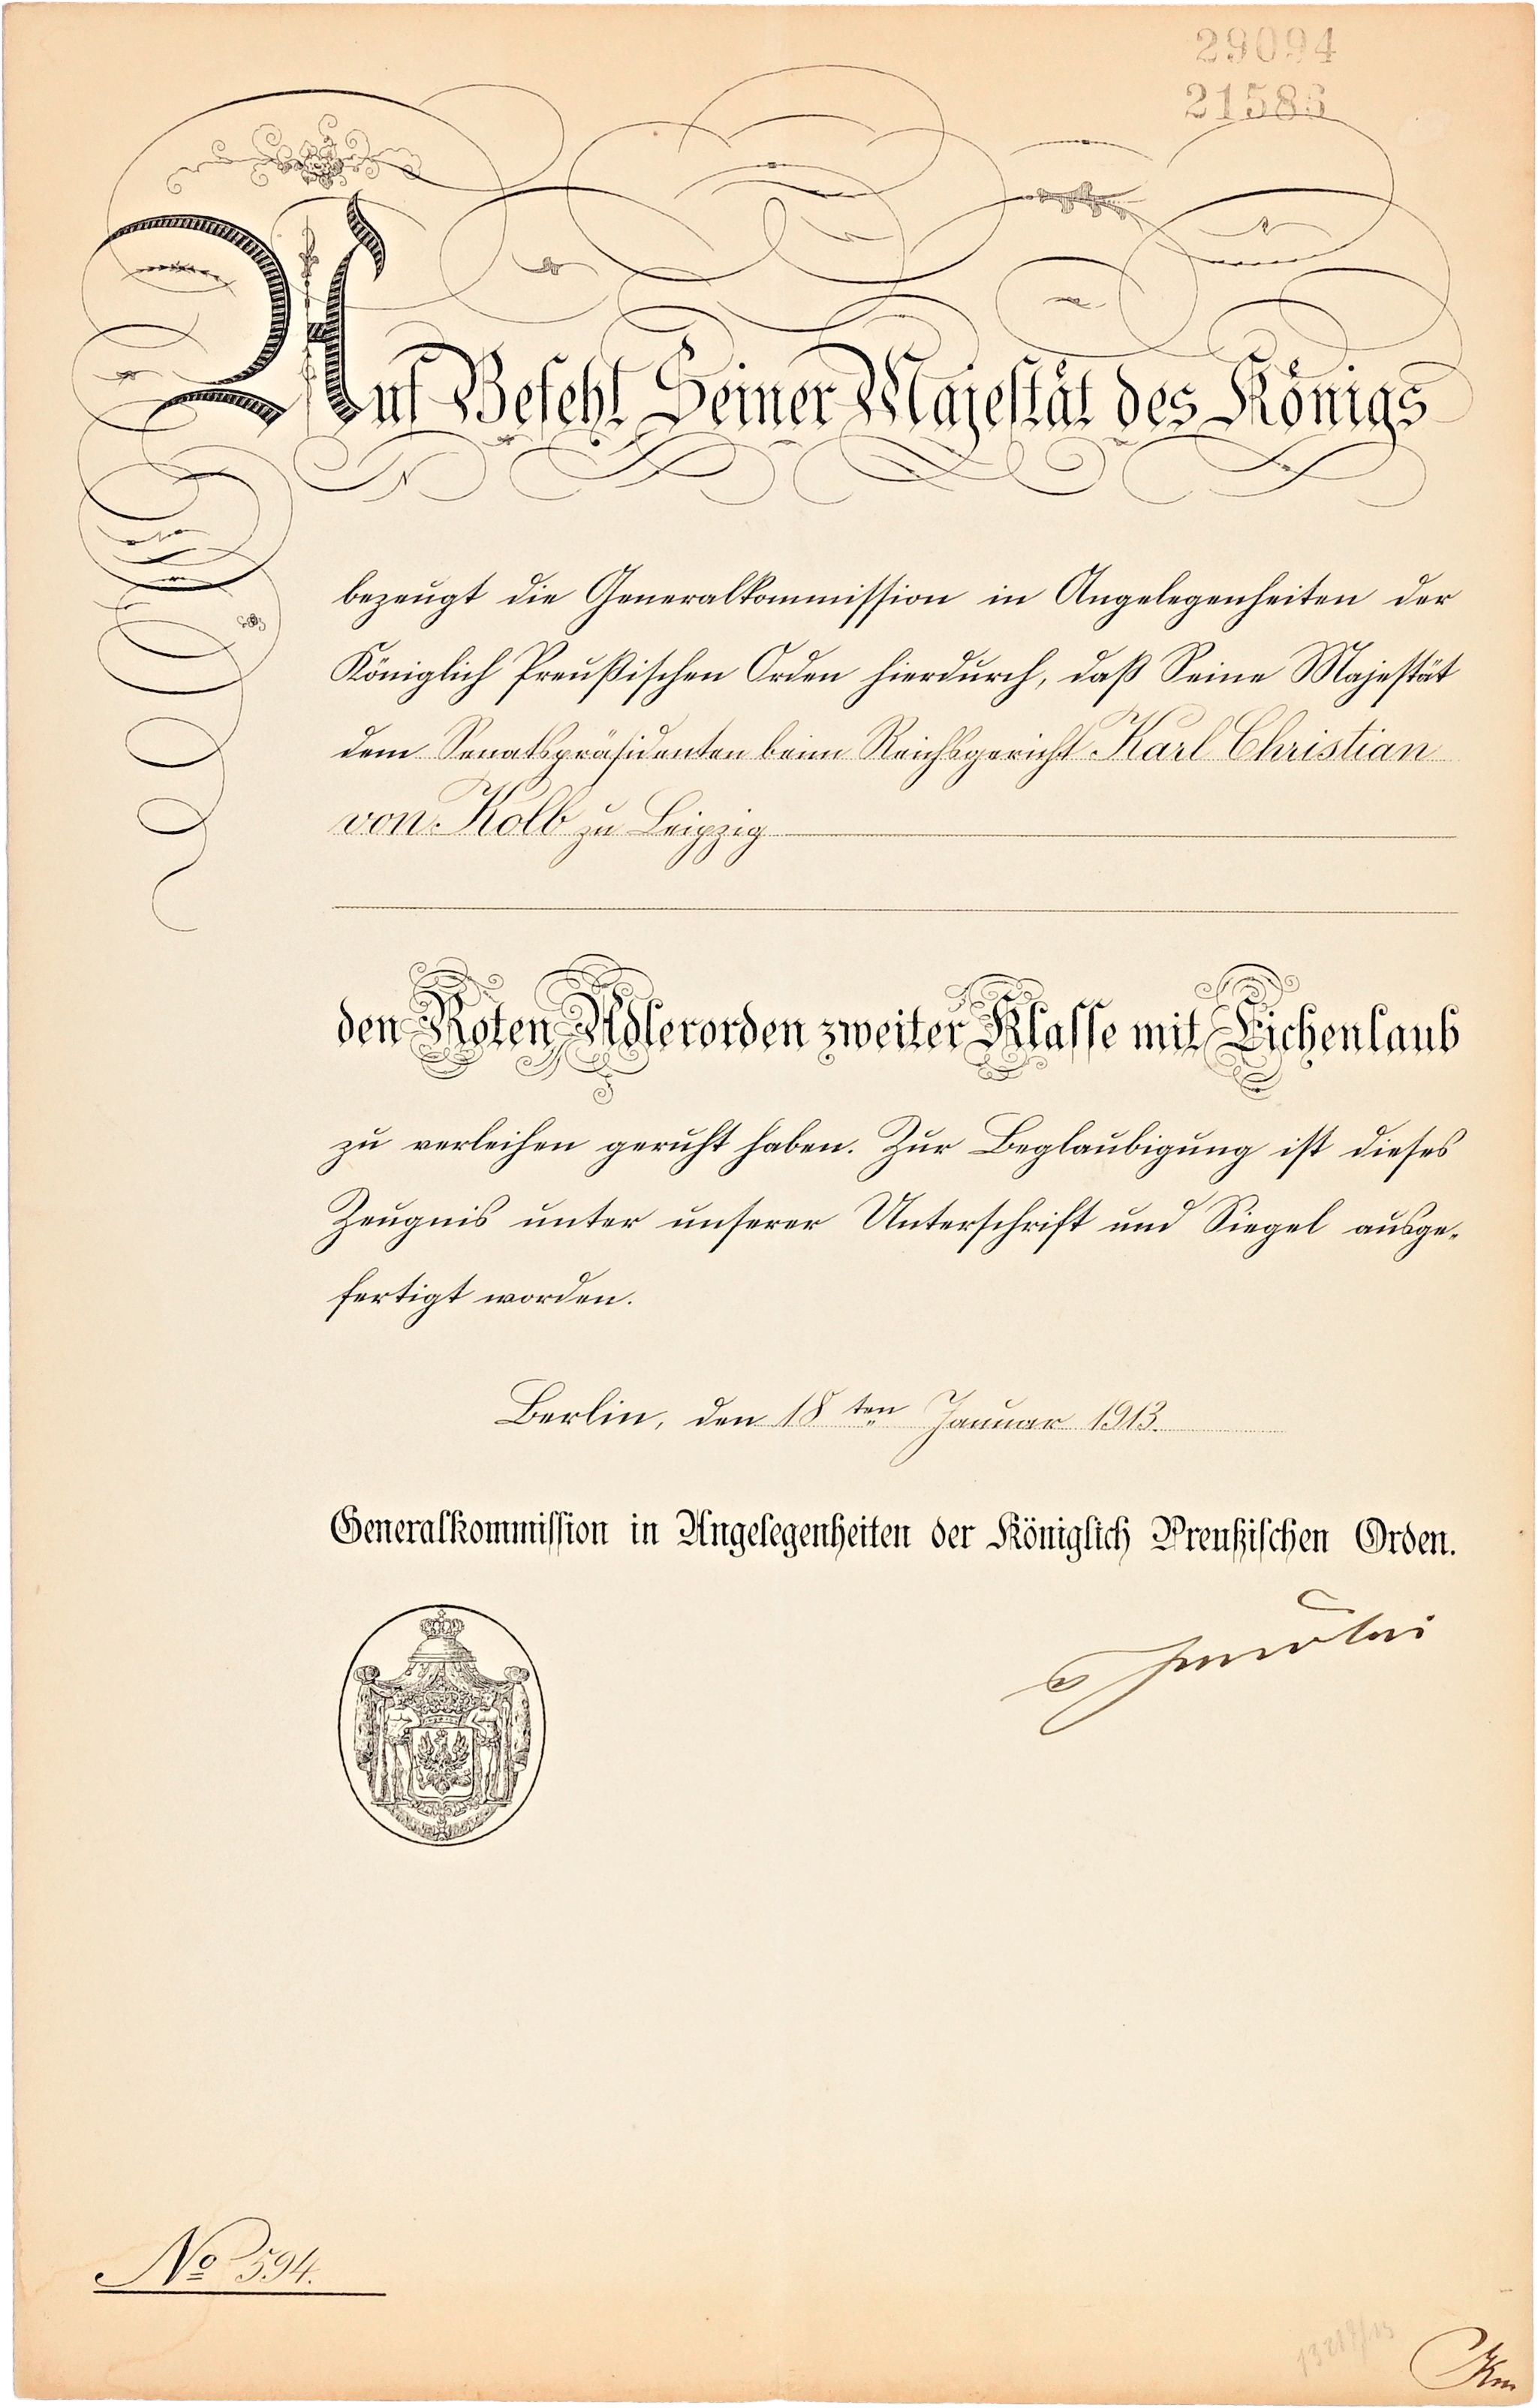 29094
21586
Auf Befehl Seiner Majestät des Königs
bezeugt die Generalkommission in Angelegenheiten der
Königlich Preußischen Orden hierdurch, daß Seine Majestät
dem Senatspräsidenten beim Reichsgericht Karl Christian
von Kolb zu Leipzig
den Roten Adlerorden zweiter Klasse mit Eichenlaub
zu verleihen geruht haben. Zur Beglaubigung ist dieses
Zeugnis unter unserer Unterschrift und Siegel ausge-
fertigt worden.
Berlin, den 18ten Januar 1913.
Generalkommission in Angelegenheiten der Königlich Preußischen Orden.
No 594.